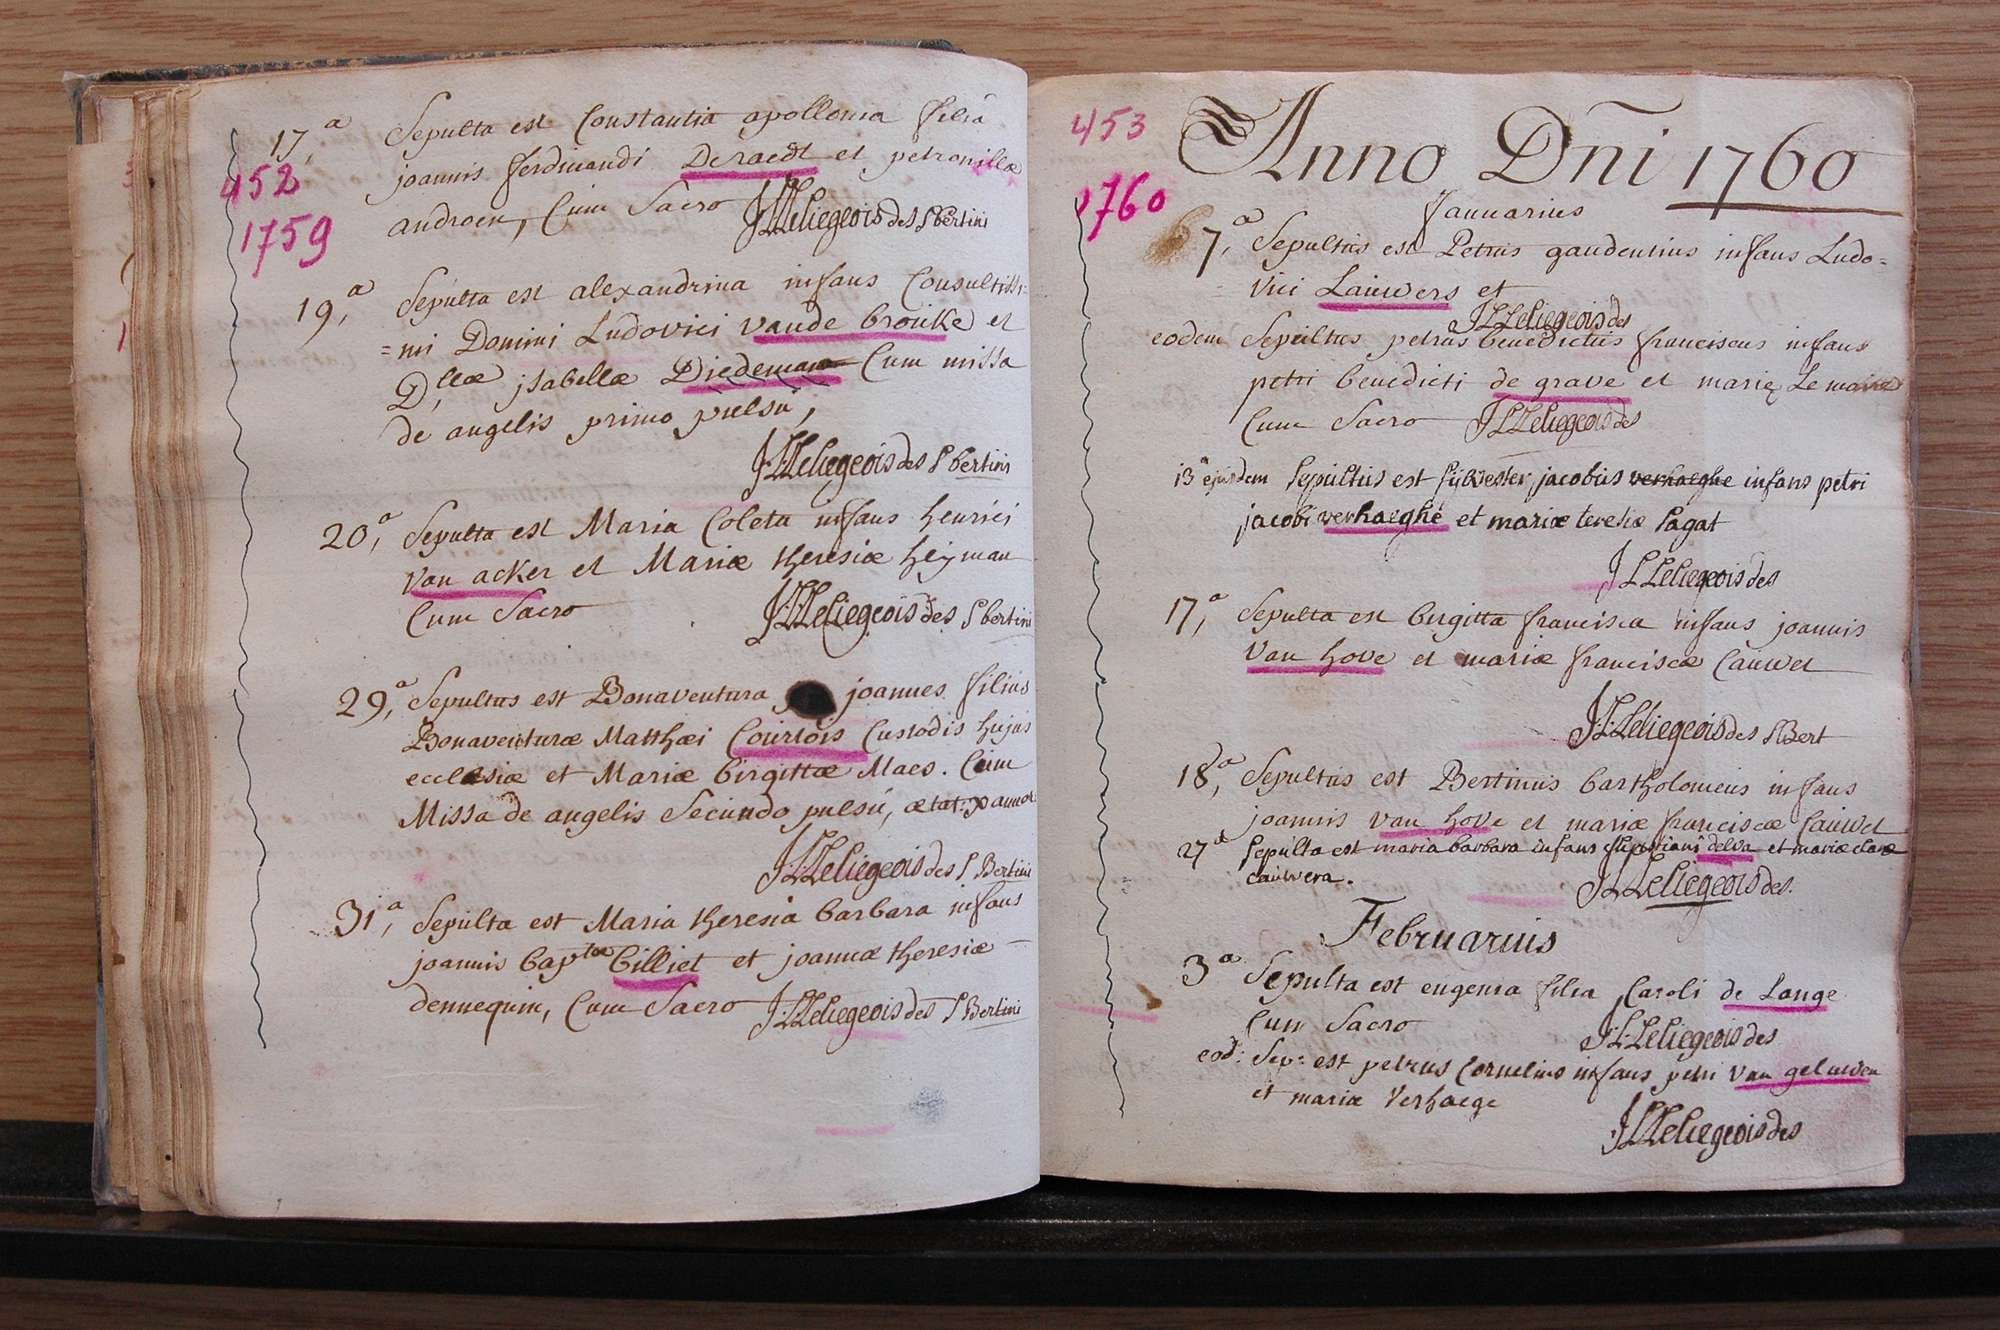 452
1759
17,a Sepulta est Constantia apollonia filia
joannis ferdinandi Deraedt et petronillæ
androen, Cum Sacro J:L:Leliegeois des S bertini
19,a Sepulta est alexandrina infans Consultissi=
=mi Domini Ludovici vande brouke et
D,llæ jsabellæ Diedeman Cum missa
de angelis primo pulsu,
J:L:Leliegeois des S bertini
20,a Sepulta est Maria Coleta infans henrici
Van acker et Mariæ theresiæ heyman
Cum Sacro J:L:Leliegeois des S bertini
29,a Sepultus est Bonaventura joannes filius
Bonaventuræ Matthæi Courtois Custodis hujus
ecclesiæ et Mariæ birgittæ Maes. Cum
Missa de angelis Secundo pulsu, ætat:
J:L:Leliegeois des S Bertini
31,a Sepulta est Maria theresia barbara infans
joannis bapttæ billiet et joannæ theresiæ
dennequin, Cum Sacro J:L:Leliegeois des S Bertini
453
1760
Anno Dñi 1760
Januarius
7,a Sepultus est Petrus gaudentius infans Ludo=
vici Lauwers et
J:L:Leliegeois des
eodem Sepultus petrus benedictus franciscus infans
petri benedicti de grave et marię Le maire
Cum Sacro J L Leliegeois des
13 ejusdem Sepultus est Sylvester jacobus verhaeghe infans petri
jacobi verhaeghe et mariæ teresiæ Pagat
J L Leliegeois des
17,a Sepulta est birgitta francisca infans joannis
Van hove et mariæ franciscæ Cauwet
J:L:Leliegeois des S Bert
18,a Sepultus est Bertinus bartholomeus infans
joannis van hove et mariæ franciscæ Cauwet
27a Sepulta est maria barbara infans delva et mariæ claræ
cauwera. J L Leliegeois des.
Februarius
3a Sepulta est eugenia filia Caroli de Lange
Cum Sacro J:L:Leliegeois des
eod: Sep: est petrus Cornelius infans petri Van geluwen
et mariæ Verhaege
J L Leliegeois des